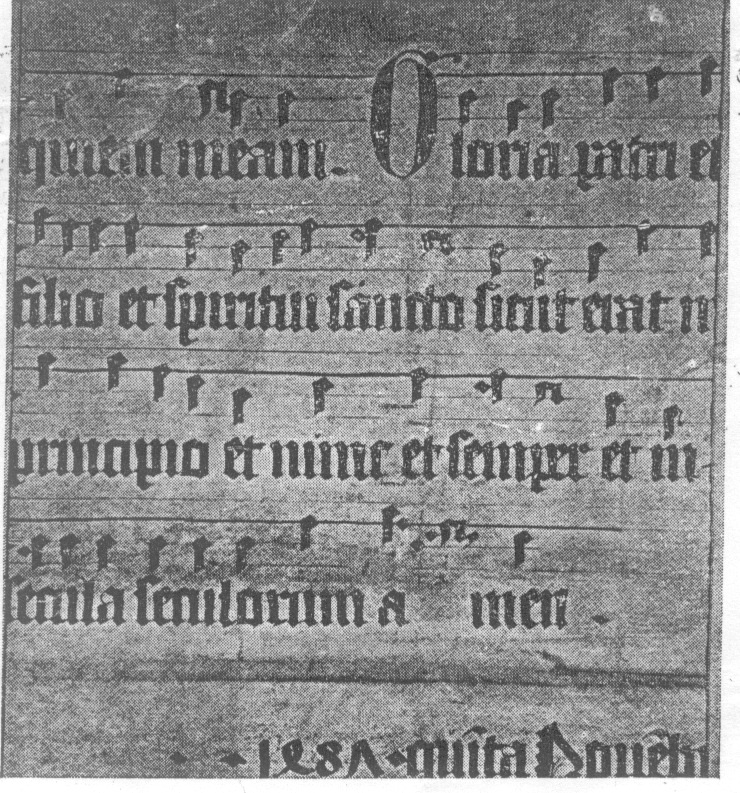 quiem meam. Gloria patri et
filio et spiritui sancto sicut erat in
principio et nunc et semper et in
secula seculorum a men.
quīta Nouēbr